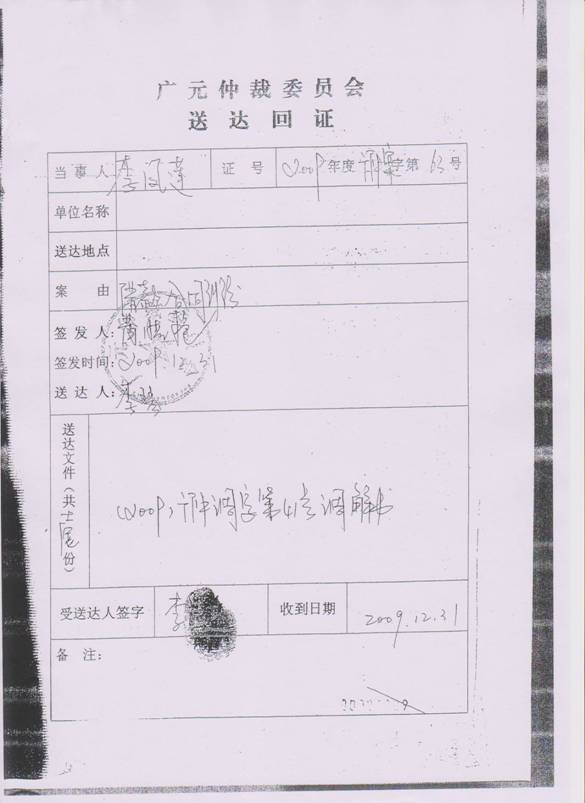 广元仲裁委员会
送达回证
当事人 李凤莲 证号 2009年度 字第63号
单位名称
送达地点
案由 合同纠纷
签发人:黄
签发时间:2009.12.31
送达人:李
送达文件(共 份)
2009, 仲调字第41号调解书
受送达人签字 李 收到日期 2009.12.31
备注: